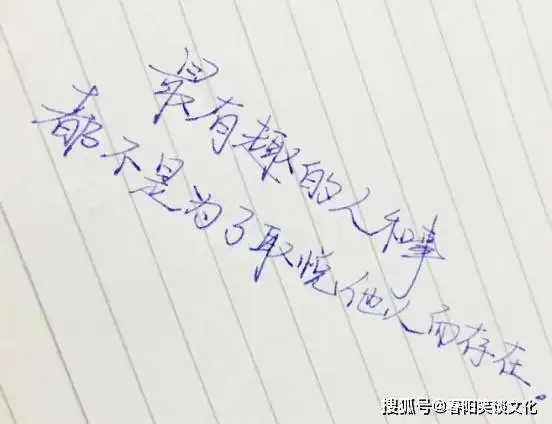 最有趣的人和事
都不是为了取悦他人而存在。
搜狐号@春阳笑谈文化